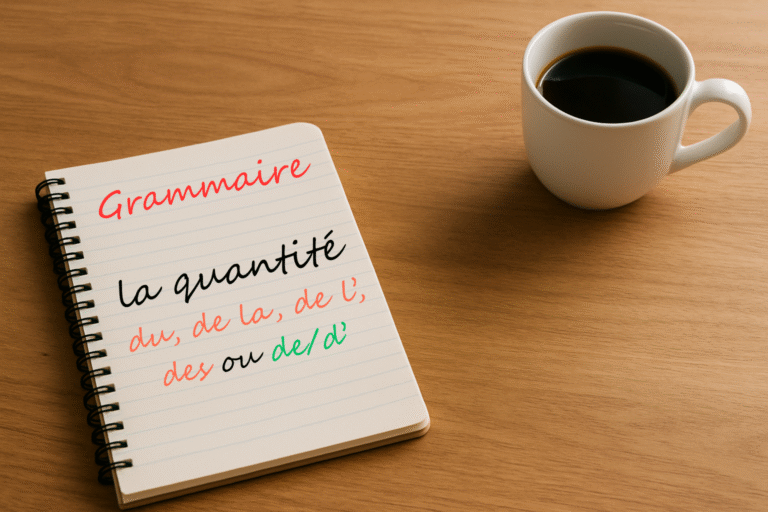 Grammaire
la quantité
du, de la, de l',
des ou de/d'